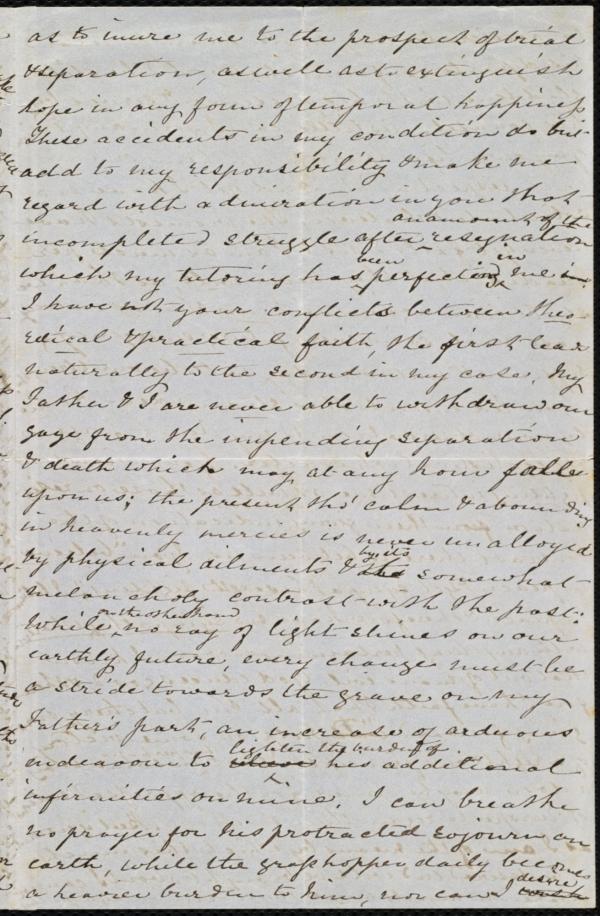 as to inure me to the prospect of trial
& separation, as well as to extinguish
hope in any form of temporal happiness.
These accidents in my condition do but
add to my responsibility & make me
regard with admiration in you that
an amount of the
incompleted struggle after resignation
been in
which my tutoring has perfected me in.
I have not your conflicts between theo-
retical & practical faith, the first lead
naturally to the second in my case. My
Father & I are never able to withdraw our
gaze from the impending separation
& death which may at any hour fall
upon us; the present tho' calm & abounding
in heavenly mercies is never unalloyed
by its
by physical ailments & the somewhat
melancholy contrast with the past:
on the other hand
While no ray of light shines on our
earthly future, every change must be
a stride towards the grave on my
Father's part, an increase of arduous
lighten the burden of
endeavour to relieve his additional
infirmities on mine. I can breathe
no prayer for his protracted sojourn on
earth, while the grasshopper daily becomes
desire
a heavier burden to him, nor can I wish